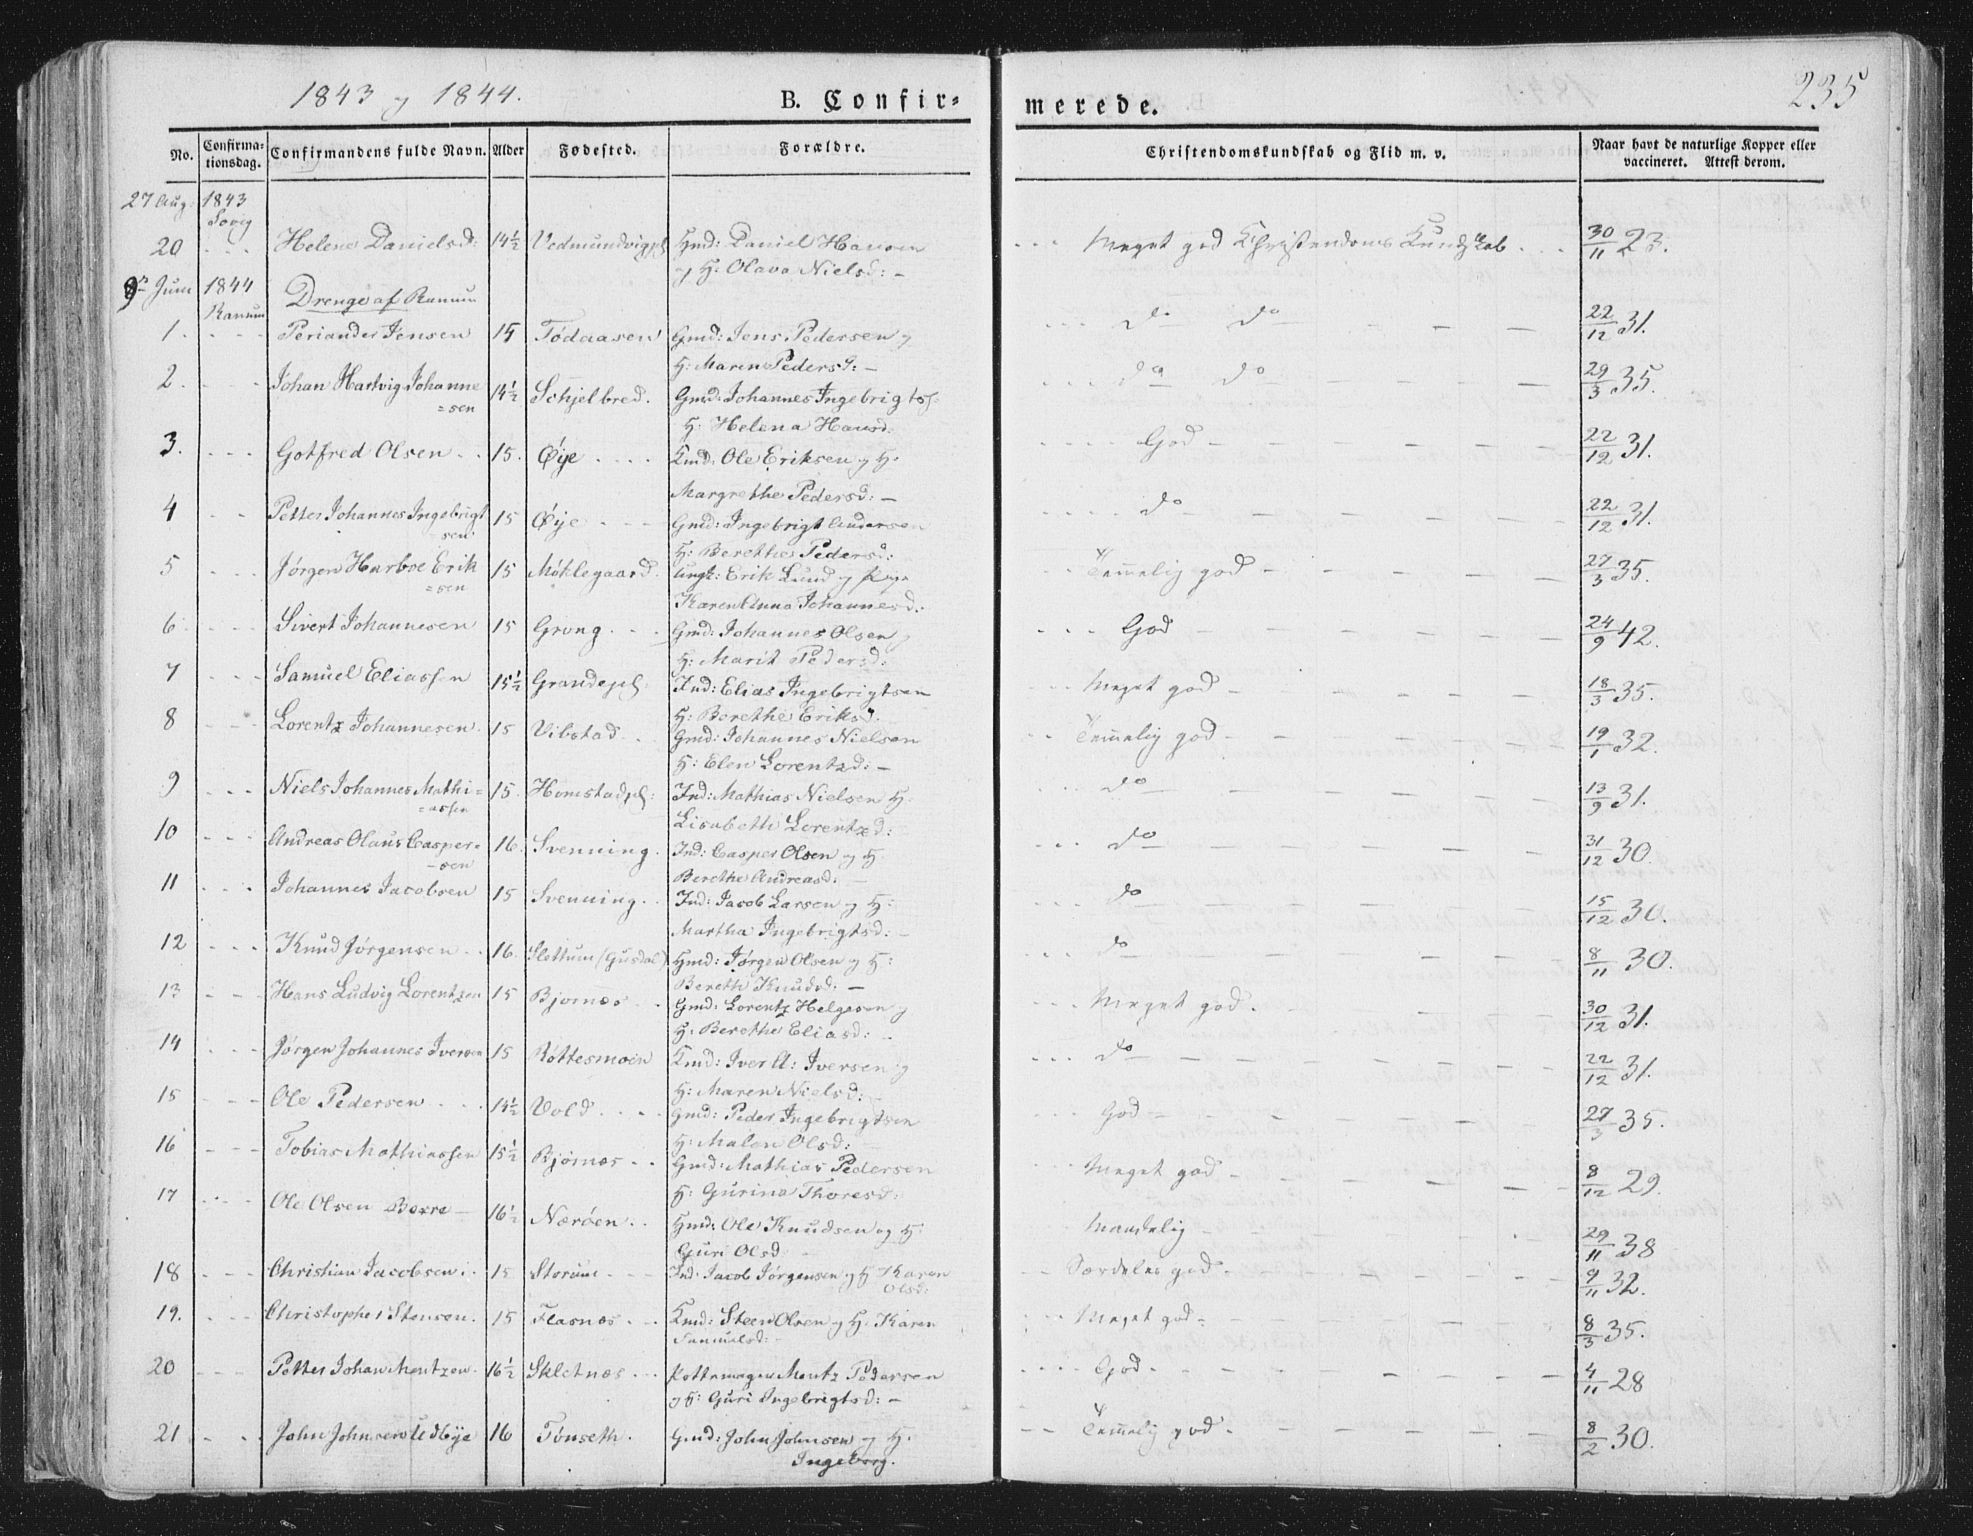 1843 og 1844.
B. Confir=
merede.
235
No.
Confirma-
tionsdag.
Confirmandens fulde Navn.
Alder
Fødested.
Forældre.
Christendomskundskab og Flid m. v.
Naar havt de naturlige Kopper eller
vaccineret. Attest derom.
27 Aug: 1843
20 Helene Danielsd: 14½ Vedmundvigpl Hmd: Daniel Hansen Meget god Christendoms Kundskab 30/11 23.
og H: Olava Nielsd: –
9de Juni 1844 Drenge af Ranum
Ranum
1. Periander Jensen 15 Tødaasen Gmd: Jens Pedersen og do do 22/12 31.
H: Maren Pedersd: –
2. Johan Hartvig Johanne 14½ Schjelbred. Gmd: Johannes Ingebrigts: do do 29/3 35.
=sen H: Helena Hansd:
3. Gotfred Olsen 15. Øye Kmd: Ole Eriksen og H: God 22/12 31.
Margrethe Pedersd: –
4 Petter Johannes Ingebrigt 15 Øye Gmd: Ingebrigt Andersen do 22/12 31.
sen H: Berethe Pedersd:
5 Jørgen Harboe Erik 15 Møklegaard Ungk: Erik Lund og Pige Temmelig god 27/3 35.
=sen Karen Anna Johannesd:
6 Sivert Johannesen 15 Grong Gmd: Johannes Olsen og God 24/9 42.
H: Marit Pedersd:
7 Samuel Eliassen 15½ Grandepl. Ind: Elias Ingebrigtsen Meget god 18/3 35.
H: Berethe Eriksd:
8 Lorentz Johannesen 15 Vibstad Gmd: Johannes Nielsen Temmelig god 19/1 32.
H: Elen Lorentzd: –
9 Niels Johannes Mathi= 15. Homstadpl: Ind: Mathias Nielsen H: do 13/9 31.
=assen Lisabeth Lorentzd:
10 Andreas Olaus Casper= 16. Svenning Ind: Casper Olsen og H. do 31/12 30.
=sen Berethe Andreasd:
11 Johannes Jacobsen 15 Svenning Ind: Jacob Larsen og H: do 15/12 30.
Martha Ingebrigtsd: –
12 Knud Jørgensen 16. Slettum (Gusdal) Hmd: Jørgen Olsen og H: do 8/11 30.
Bereth Knudsd: –
13 Hans Ludvig Lorentzen 15 Bjørnes Gmd: Lorentz Helgesen og Meget god. 30/12 31.
H: Berethe Eliasd:
14 Jørgen Johannes Iversen 15 Røttesmoen Kmd: Iver A: Iversen og do 22/12 31.
H: Maren Nielsd:
15 Ole Pedersen 14½ Vold Gmd: Peder Ingebrigtsen God 27/3 35.
H: Malen Olsd:
16 Tobias Mathiassen 15½ Bjørnes Gmd: Mathias Pedersen Meget god 8/12 29.
H: Gurina Thoresd:
17 Ole Olsen Berre 16½ Nærøen Hmd: Ole Knudsen og H: Maadelig 29/11 38
Guri Olsd:
18 Christian Jacobsen 15 Storum Ind: Jacob Jørgensen og H Karen Særdeles god. 9/11 32.
Olsd:
19. Christopher Stensen. 15 Flasnes Kmd: Steen Olsen og H. Karen Meget god 8/3 35.
Samuelsd:
20 Petter Johan Mentzen 16½ Skletnes Pottemager Mentz Pedersen God 4/11 28
og H: Guri Ingebrigtsd: –
21 John Johnsen 16 Tønseth. Gmd: John Johnsen og H. Temmelig god 8/2 30.
Ingeborg.